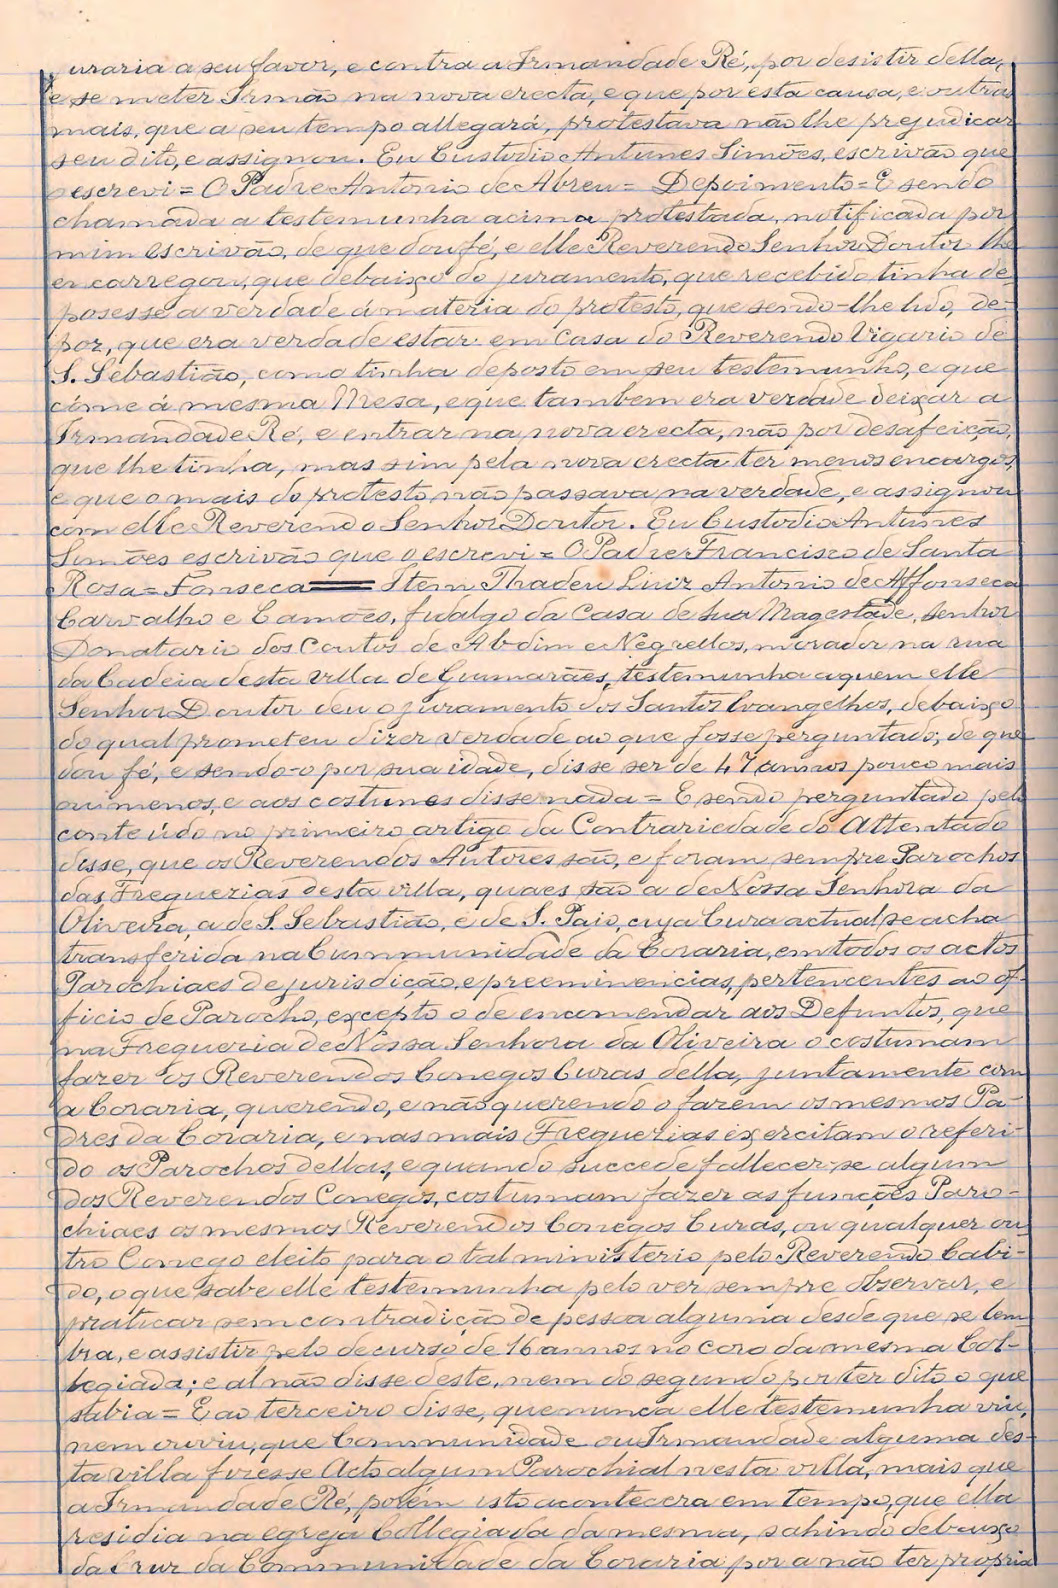 uraria a seu favor, e contra a Irmandade Ré, por desistir della,
e se meter Irmão na nova erecta, e que por esta causa, e outras
mais, que a seu tempo allegará, protestava não lhe prejudicar
seu dito, e assignou. Eu Custodio Antunes Simões, escrivão que
o escrevi = O Padre Antonio de Abreu = Depoimento = E sendo
chamada a testemunha acima protestada, notificada por
mim escrivão, de que dou fé, e elle Reverendo Senhor Doutor lhe
encarregou, que debaixo do juramento, que recebido tinha de-
posesse a verdade á materia do protesto, que sendo-lhe lido, de-
poz, que era verdade estar em casa do Reverendo Vigario de
S. Sebastião, como tinha deposto em seu testemunho, e que
cóme á mesma Mesa, e que tambem era verdade deixar a
Irmandade Ré, e entrar na nova erecta, não por desafeição,
que lhe tinha, mas sim pela nova erecta ter menos encargos,
e que o mais do protesto, não passava na verdade, e assignou
com elle Reverendo Senhor Doutor. Eu Custodio Antunes
Simões escrivão que o escrevi = O Padre Francisco de Santa
Rosa = Fonseca == Item Thadeu Luiz Antonio de Affonseca
Carvalho e Camões, fidalgo da Casa de Sua Magestade, Senhor
Donatario dos Coutos de Abdim e Negrellos, morador na rua
da Cadeia desta villa de Guimarães, testemunha a quem elle
Senhor Doutor deu o juramento dos Santos Evangelhos, debaixo
do qual prometeu dizer verdade ao que fosse perguntado, de que
dou fé, e sendo-o por sua idade, disse ser de 47 annos pouco mais
ou menos, e aos costumes disse nada = E sendo perguntado pelo
conteúdo no primeiro artigo da Contrariedade do Attentado
disse, que os Reverendos Autores são, e foram sempre Parochos
das Freguezias desta villa, quaes são a de Nossa Senhora da
Oliveira, a de S. Sebastião, e de S. Paio, cuja Cura actual se acha
transferida na Cummunidade da Coraria, em todos os actos
Parochiaes de jurisdicção, e preeminencias, pertencentes ao of-
ficio de Parocho, excépto o de encomendar aos Defuntos, que
na Freguezia de Nossa Senhora da Oliveira o costumam
fazer os Reverendos Conegos Curas della, juntamente com
a Coraria, querendo, e não querendo o fazem os mesmos Pa-
dres da Coraria, e nas mais Freguezias exercitam o referi-
do os Parochos dellas, e quando succede fallecer-se algum
dos Reverendos Conegos, costumam fazer as funções Paro-
chiaes os mesmos Reverendos Conegos Curas, ou qualquer ou-
tro Conego eleito para o tal ministerio pelo Reverendo Cabi-
do, o que sabe elle testemunha pelo ver sempre observar, e
praticar sem contradição de pessoa alguma desde que se lem-
bra, e assistir pelo decurso de 16 annos no coro da mesma Col-
legiada; e al não disse deste, nem do segundo por ter dito o que
sabia = E ao terceiro disse, que nunca elle testemunha viu,
nem ouviu, que Communidade ou Irmandade alguma des-
ta villa fizesse Acto algum Parochial nesta villa, mais que
a Irmandade Ré, porém isto acontecera em tempo, que ella
residia na egreja Collegiada da mesma, sahindo debaixo
da Cruz da Communidade da Coraria por a não ter propria